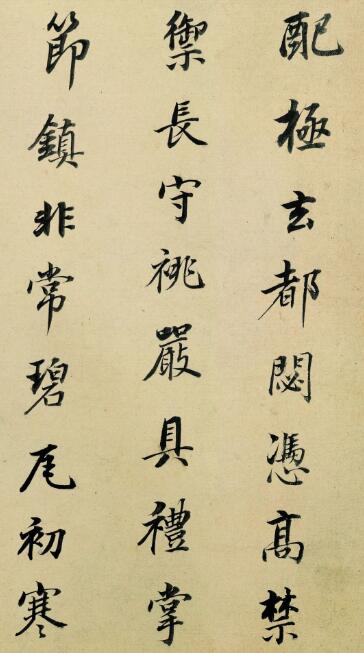 配極玄都閟憑高禁
禦長守祧嚴具禮掌
節鎮非常碧瓦初寒